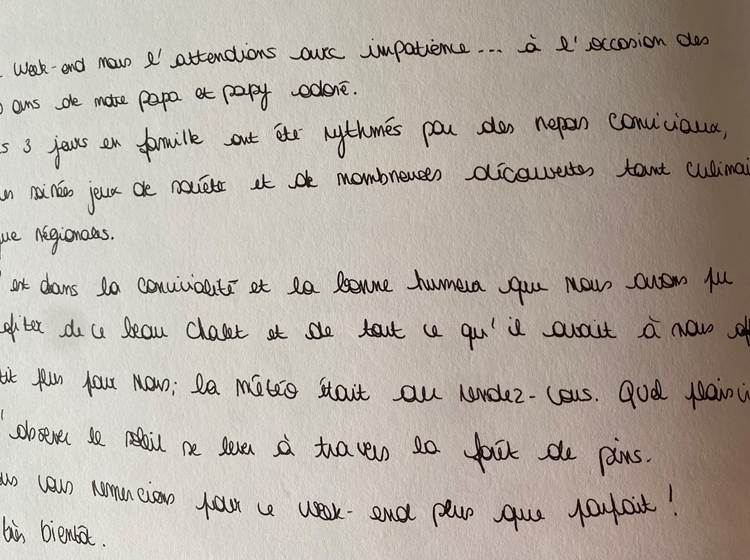 week-end nous l'attendions avec impatience... à l'occasion des
ans de notre papa et papy adoré.
s 3 jours en famille ont été rythmés par des repas conviviaux,
soirées jeux de société et de nombreuses découvertes tant culinai
ue régionales.
est dans la convivialité et la bonne humeur que nous avons pu
ofiter de ce beau chalet et de tout ce qu'il avait à nous of
tit plus pour nous; la météo était au rendez-vous. Quel plaisir
'observer le soleil se lever à travers la forêt de pins.
us vous remercions pour ce week-end plus que parfait !
très bientôt.